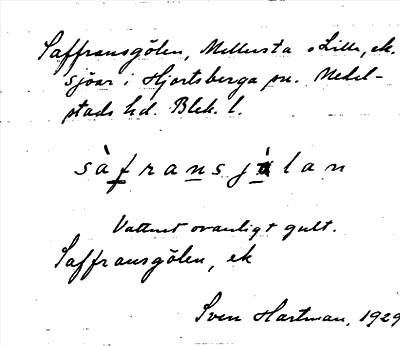 Saffransgölen, Mellersta o Lilla, ek.
sjöar i Hjortsberga sn. Medel-
stads hd. Blek. l.
sàfransjàlan
Vattnet ovanligt gult.
Saffransgölen, ek
Sven Hartman, 1929